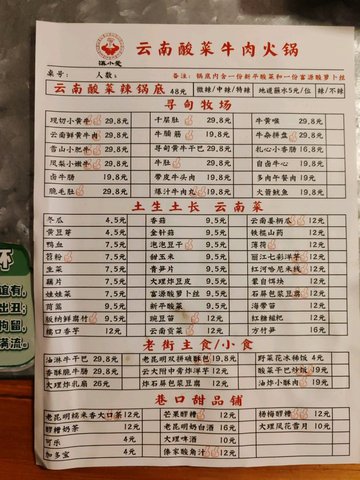 温小爱
云南酸菜牛肉火锅
桌号： 人数： 备注：锅底内含一份新平酸菜和一份富源酸萝卜丝
云南酸菜辣锅底 48元 微辣/中辣/特辣 地道蘸水5元/位 辣/不辣
寻甸牧场
现切小黄牛 29.8元 十层肚 29.8元 牛黄喉 29.8元
云南鲜黄牛肉 29.8元 牛腩筋 29.8元 牛杂拼盘 29.8元
雪山小肥牛 29.8元 寻甸黄牛干巴 29.8元 扎心小香肠 16.8元
凤梨小嫩牛 29.8元 牛肚 19.8元 自卤牛心 19.8元
卤牛肠 19.8元 带皮牛头肉 19.8元 多肉午餐肉 19元
脆毛肚 29.8元 爆汁牛肉丸 19.8元 火箭鱿鱼 19.8元
土生土长 云南菜
冬瓜 4.5元 香菇 9.5元 云南蒌柄瓜 12元
黄豆芽 4.5元 金针菇 9.5元 铁棍山药 12元
鸭血 7.5元 泡泡豆干 9.5元 薄荷 12元
苕粉 7.5元 甜玉米 9.5元 丽江七彩洋芋 12元
韭菜 7.5元 青笋片 9.5元 红河哈尼米线 12元
藕片 7.5元 大理炸豆皮 9.5元 蒙自饵块 12元
娃娃菜 7.5元 富源酸萝卜丝 9.5元 石屏包浆豆腐 12元
茼蒿 9.5元 新平酸菜 9.5元 海带苗 12元
版纳鲜腐竹 9.5元 豌豆苗 12元 红糖糍粑 12元
糯口香芋 12元 云南贡菜 12元 方竹笋 16元
老街主食/小食
油淋牛干巴 29.8元 老昆明双拼破酥包 19.8元 野菜花冰稀饭 4元
香酥脆牛肠 29.8元 云大附中膏炸洋芋 12元 酸菜牛巴炒饭 19元
大理炸乳扇 26元 炸石屏包浆豆腐 12元 油炸小酥肉 19元
巷口甜品铺
老昆明糯米香大口茶 12元 芒果醪糟 12元 杨梅醪糟 12元
醪糟奶茶 12元 老昆明奶白酒 16元 大理风花雪月 10元
可乐 4元 大理啤酒 10元
加多宝 4元 傣家酸角汁 12元